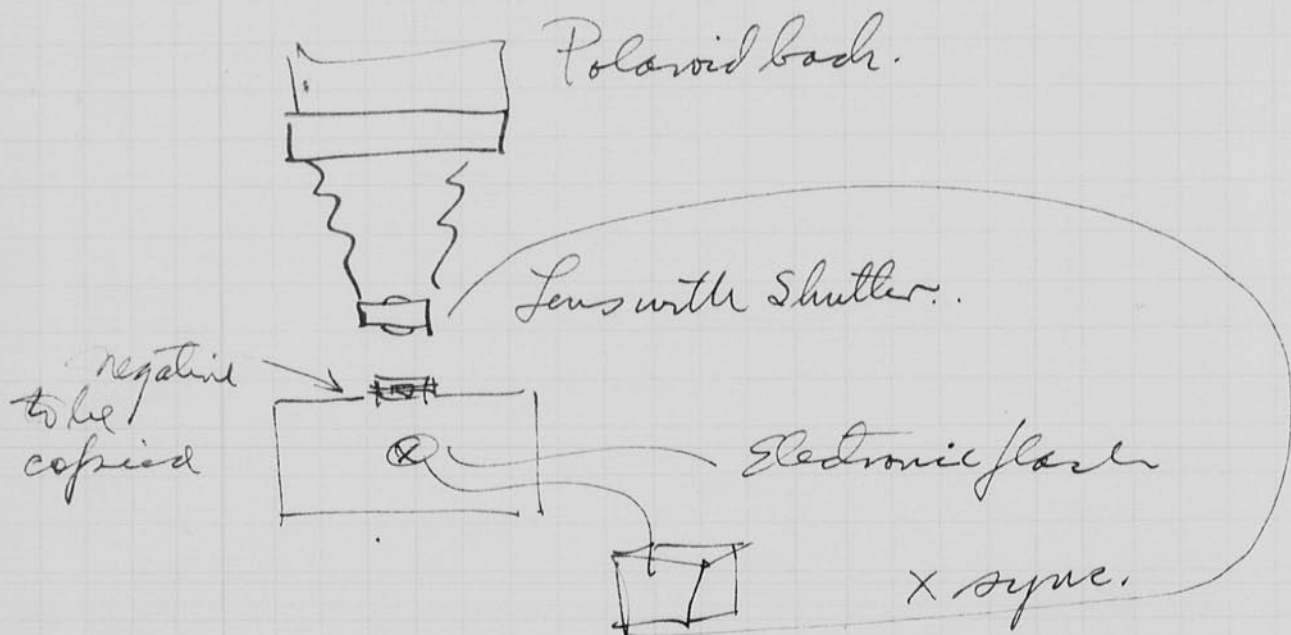 Polaroid back.
Lens with Shutter.
negative
to be
copied
Electronic flash
X sync.